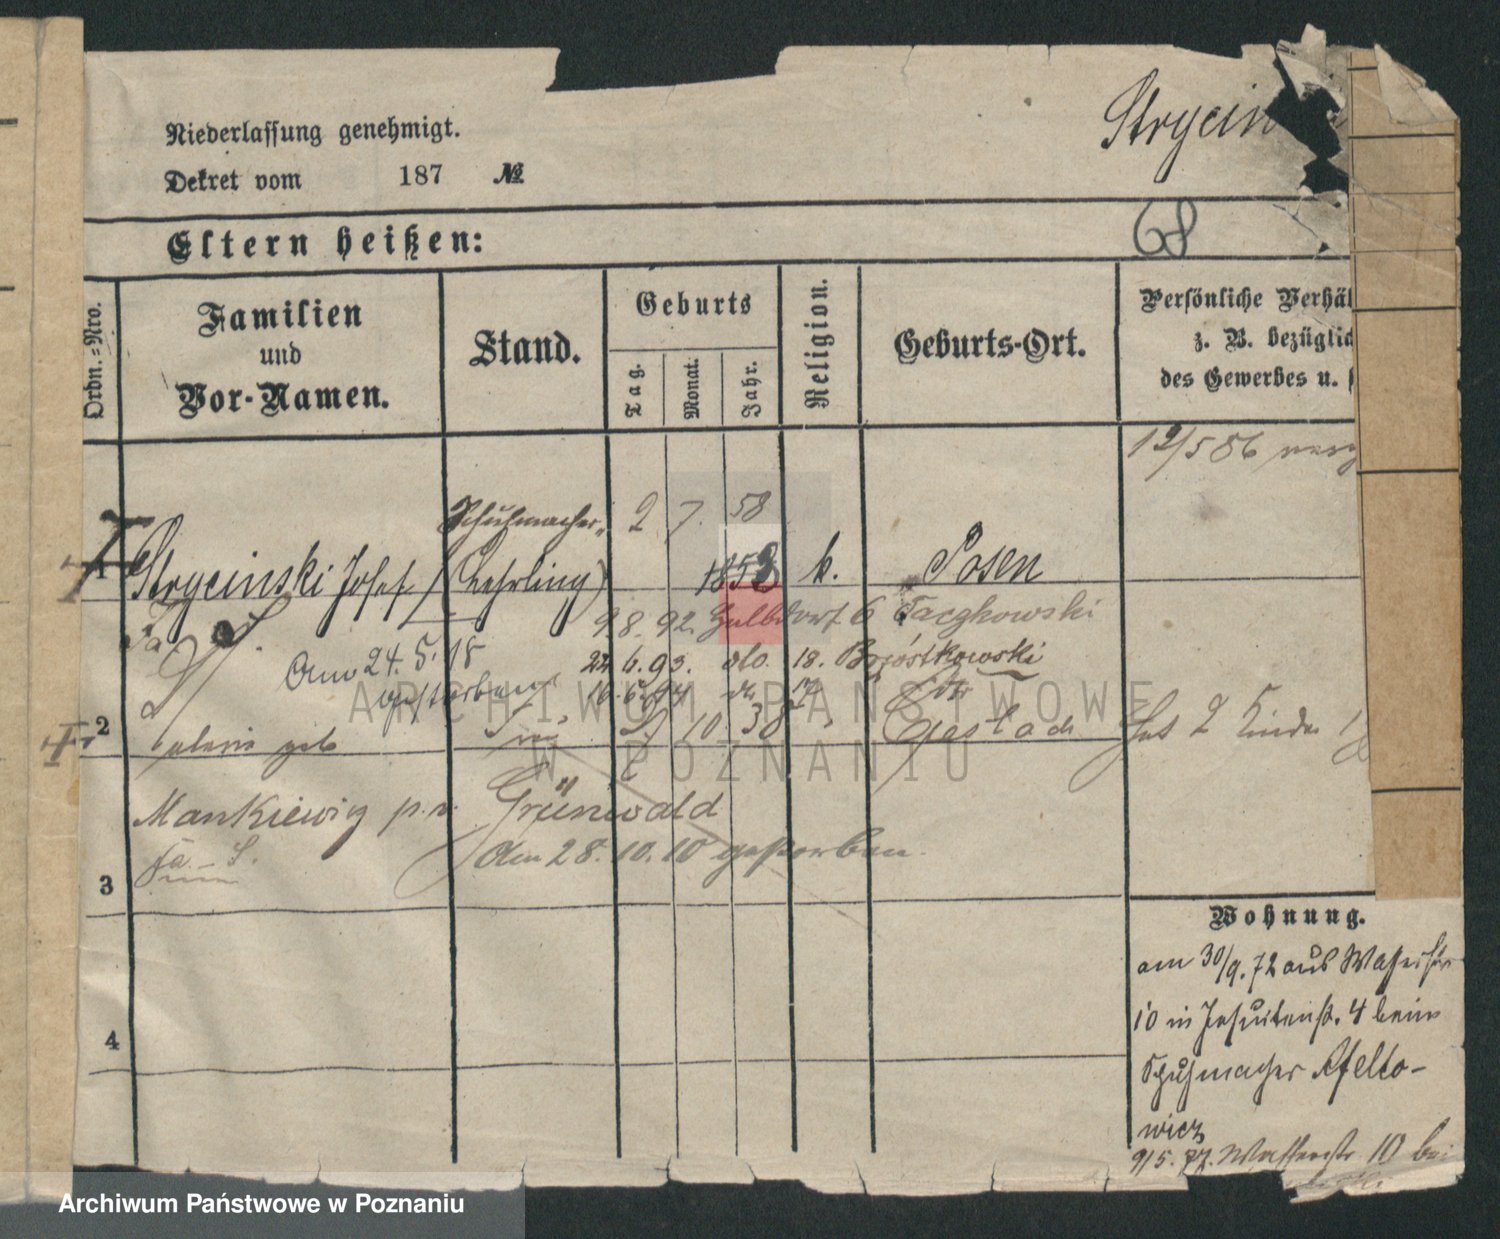 Niederlassung genehmigt.
Dekret vom 187 №
Strycin
Eltern heißen:
68
Ordn.-Nro.
Familien
und
Vor-Namen.
Stand.
Geburts
Tag.
Monat.
Jahr.
Religion.
Geburts-Ort.
Persönliche Verhäl
z. B. bezüglic
des Gewerbes u. s
12/5 86
1
Strycinski Josef
Schuhmacher-
(Lehrling)
2 7. 58
1853
k.
Posen
98. 92. 6 Taczkowski
Am 24. 5. 18
gestorben
22 6. 93. dto. 18. Brzóstkowski
16. 6. 94 17
2
geb
10 38
Hat 2 Kinder
Mankiewicz p. v. Grünwald
am 28. 10. 10 gestorben.
3
4
Wohnung.
am 30/9. 72 aus Wasserstr
10 in Jesuitenstr. 4 beim
Schuhmacher Afelto-
wicz
9/5. 77. Wasserstr 10 bei
ARCHIWUM PAŃSTWOWE
W POZNANIU
Archiwum Państwowe w Poznaniu